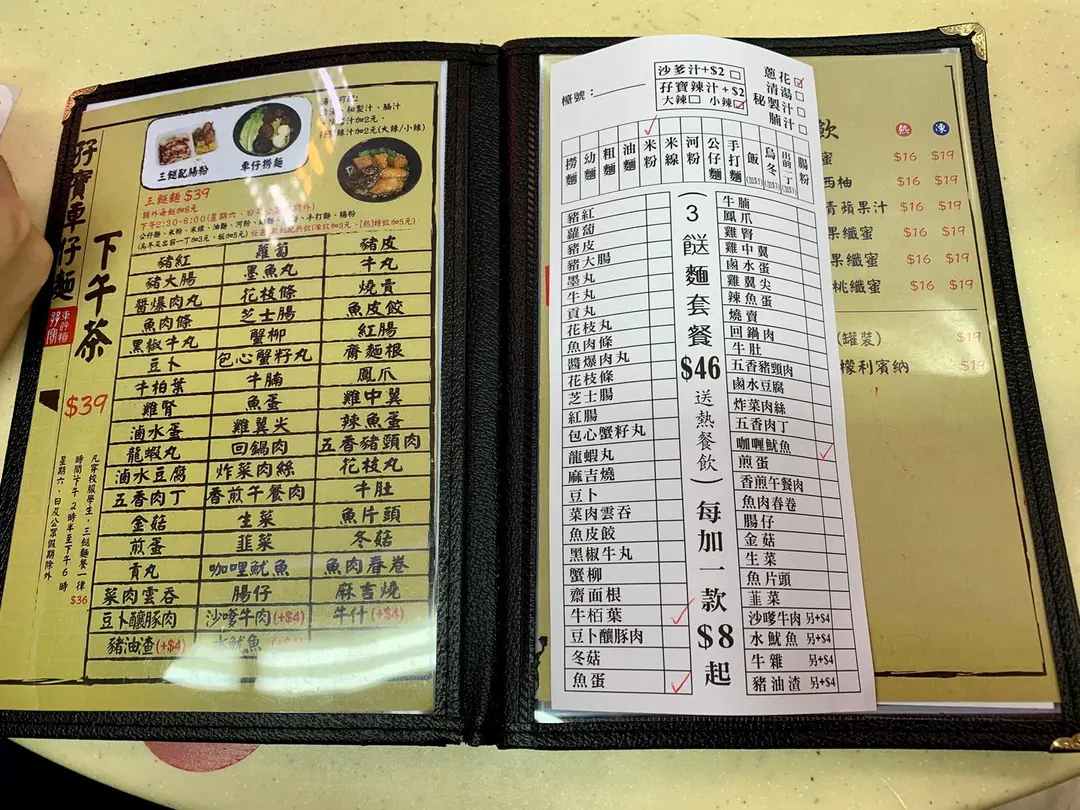 孖寶車仔麵
車仔麵
下午茶
$39
凡穿校服學生，三餸麵餐一律$36
時間下午2時半至下午6時
星期六、日及公眾假期除外
三餸配腸粉
車仔撈麵
三餸麵 $39
額外每餸加8元
下午2:30-6:00(星期六、日及公眾假期除外)
豬紅 蘿蔔 豬皮
豬大腸 墨魚丸 牛丸
醬爆肉丸 花枝條 燒賣
魚肉條 芝士腸 魚皮餃
黑椒牛丸 蟹柳 紅腸
豆卜 包心蟹籽丸 齋麵根
牛柏葉 牛腩 鳳爪
雞腎 魚蛋 雞中翼
滷水蛋 雞翼尖 辣魚蛋
龍蝦丸 回鍋肉 五香豬頸肉
滷水豆腐 炸菜肉絲 花枝丸
五香肉丁 香煎午餐肉 牛肚
金菇 生菜 魚片頭
煎蛋 韮菜 冬菇
貢丸 咖哩魷魚 魚肉春卷
菜肉雲吞 腸仔 麻吉燒
豆卜釀豚肉 沙嗲牛肉(+$4) 牛什(+$4)
豬油渣(+$4) 水魷魚
檯號：
沙爹汁+$2
孖寶辣汁+$2
大辣 小辣
蔥花
清湯
秘製汁
腩汁
撈麵
幼麵
粗麵
油麵
米粉
米線
河粉
公仔麵
手打麵
飯
烏冬
出前一丁
腸粉
豬紅
蘿蔔
豬皮
豬大腸
墨丸
牛丸
貢丸
花枝丸
魚肉條
醬爆肉丸
花枝條
芝士腸
紅腸
包心蟹籽丸
龍蝦丸
麻吉燒
豆卜
菜肉雲吞
魚皮餃
黑椒牛丸
蟹柳
齋面根
牛栢葉
豆卜釀豚肉
冬菇
魚蛋
3餸麵套餐$46
送熱餐飲)
每加一款$8起
牛腩
鳳爪
雞腎
雞中翼
鹵水蛋
雞翼尖
辣魚蛋
燒賣
回鍋肉
牛肚
五香豬頸肉
鹵水豆腐
炸菜肉絲
五香肉丁
咖喱魷魚
煎蛋
香煎午餐肉
魚肉春卷
腸仔
金菇
生菜
魚片頭
韮菜
沙嗲牛肉 另+$4
水魷魚 另+$4
牛雜 另+$4
豬油渣 另+$4
飲 熱 凍
蜜 $16 $19
西柚 $16 $19
青蘋果汁 $16 $19
果纖蜜 $16 $19
果纖蜜 $16 $19
桃纖蜜 $16 $19
(罐裝) $19
檬利賓納 $19